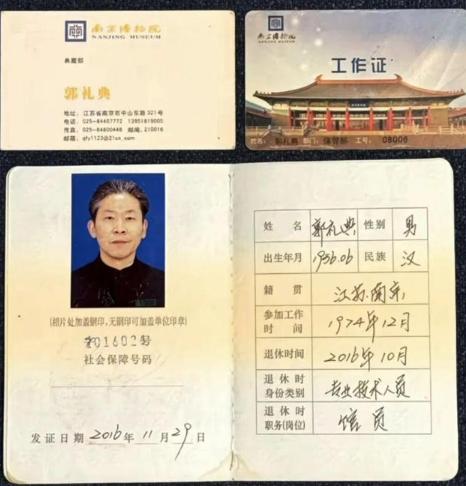 南京博物院
NANJING MUSEUM
典藏部
郭礼典
地址：江苏省南京市中山东路321号
南京博物院
NANJING MUSEUM
工作证
姓名：郭礼典 部门：保管部 工号：08006
(相片处加盖钢印，无钢印可加盖单位印章)
社会保障号码
发证日期 2016 年 11 月 29 日
姓名 郭礼典 性别 男
出生年月 1956.06 民族 汉
籍贯 江苏.南京
参加工作时间 1974年12月
退休时间 2016年10月
退休时身份类别 专业技术人员
退休时职务(岗位) 馆员